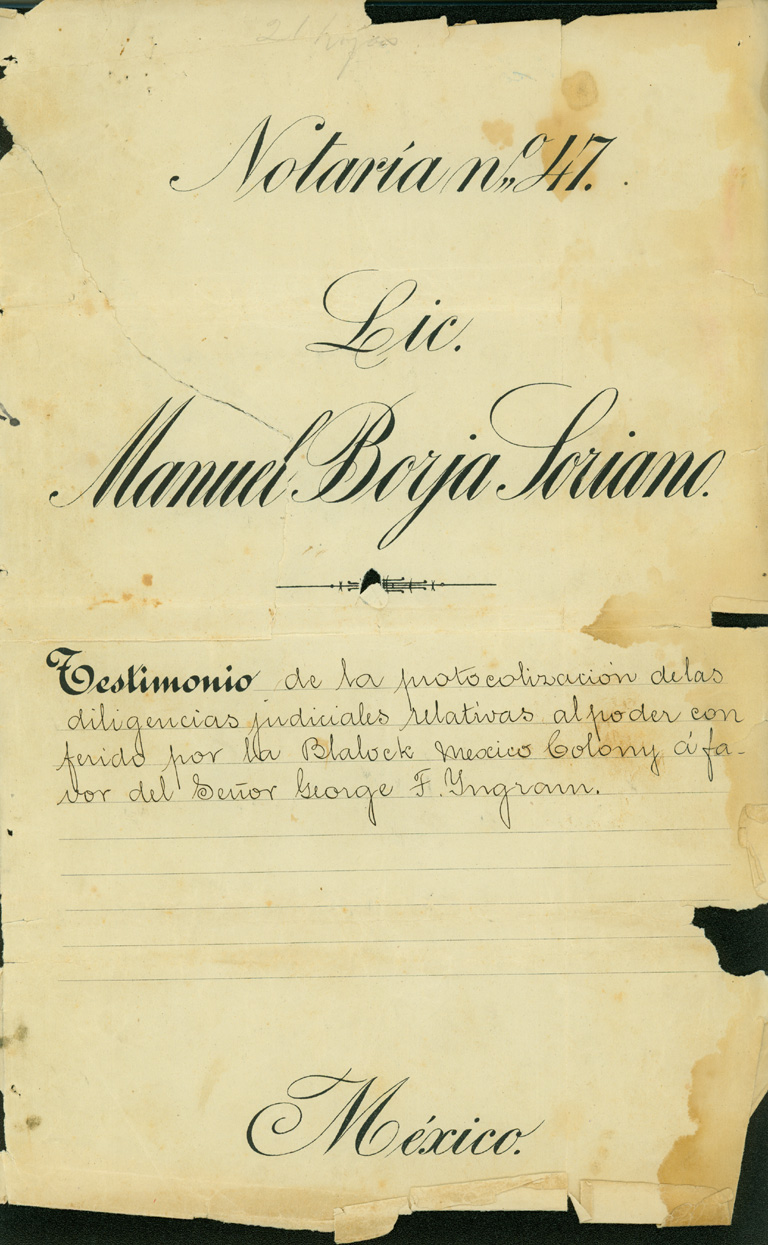 21 hojas
Notaría n.º 47.
Lic.
Manuel Borja Soriano.
Testimonio de la protocolización de las
diligencias judiciales relativas al poder con
ferido por la Blalock Mexico Colony á fa-
vor del Señor George F. Ingram.
México.